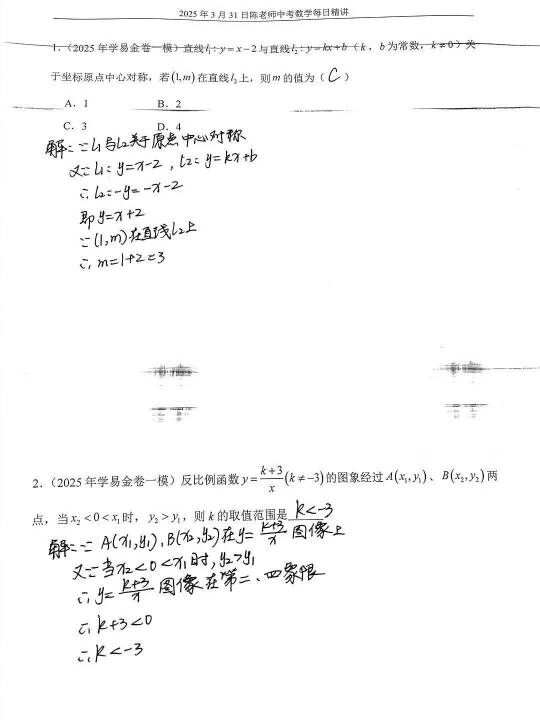 2025 年 3 月 31 日陈老师中考数学每日精讲
1.（2025 年学易金卷一模）已知直线 l₁: y = x − 2 与直线 l₂: y = kx + b（k，b 为常数，k ≠ 0）关
于坐标原点中心对称，若 (1,m) 在直线 l₂ 上，则 m 的值为（ C ）
A．1 B．2
C．3 D．4
解：∵ l₁与l₂关于原点中心对称
又∵ l₁: y=x-2，l₂: y=kx+b
∴ l₂: -y=-x-2
即 y=x+2
∵ (1,m)在直线l₂上
∴ m=1+2=3
2.（2025 年学易金卷一模）反比例函数 y = (k+3)/x (k ≠ −3) 的图象经过 A(x₁,y₁)、B(x₂,y₂) 两
点，当 x₂ < 0 < x₁ 时，y₂ > y₁，则 k 的取值范围是 k<-3
解：∵ A(x₁,y₁)，B(x₂,y₂)在y=(k+3)/x 图像上
又∵当x₂<0<x₁时，y₂>y₁
∴ y=(k+3)/x 图像在第二、四象限
∴ k+3<0
∴ k<-3